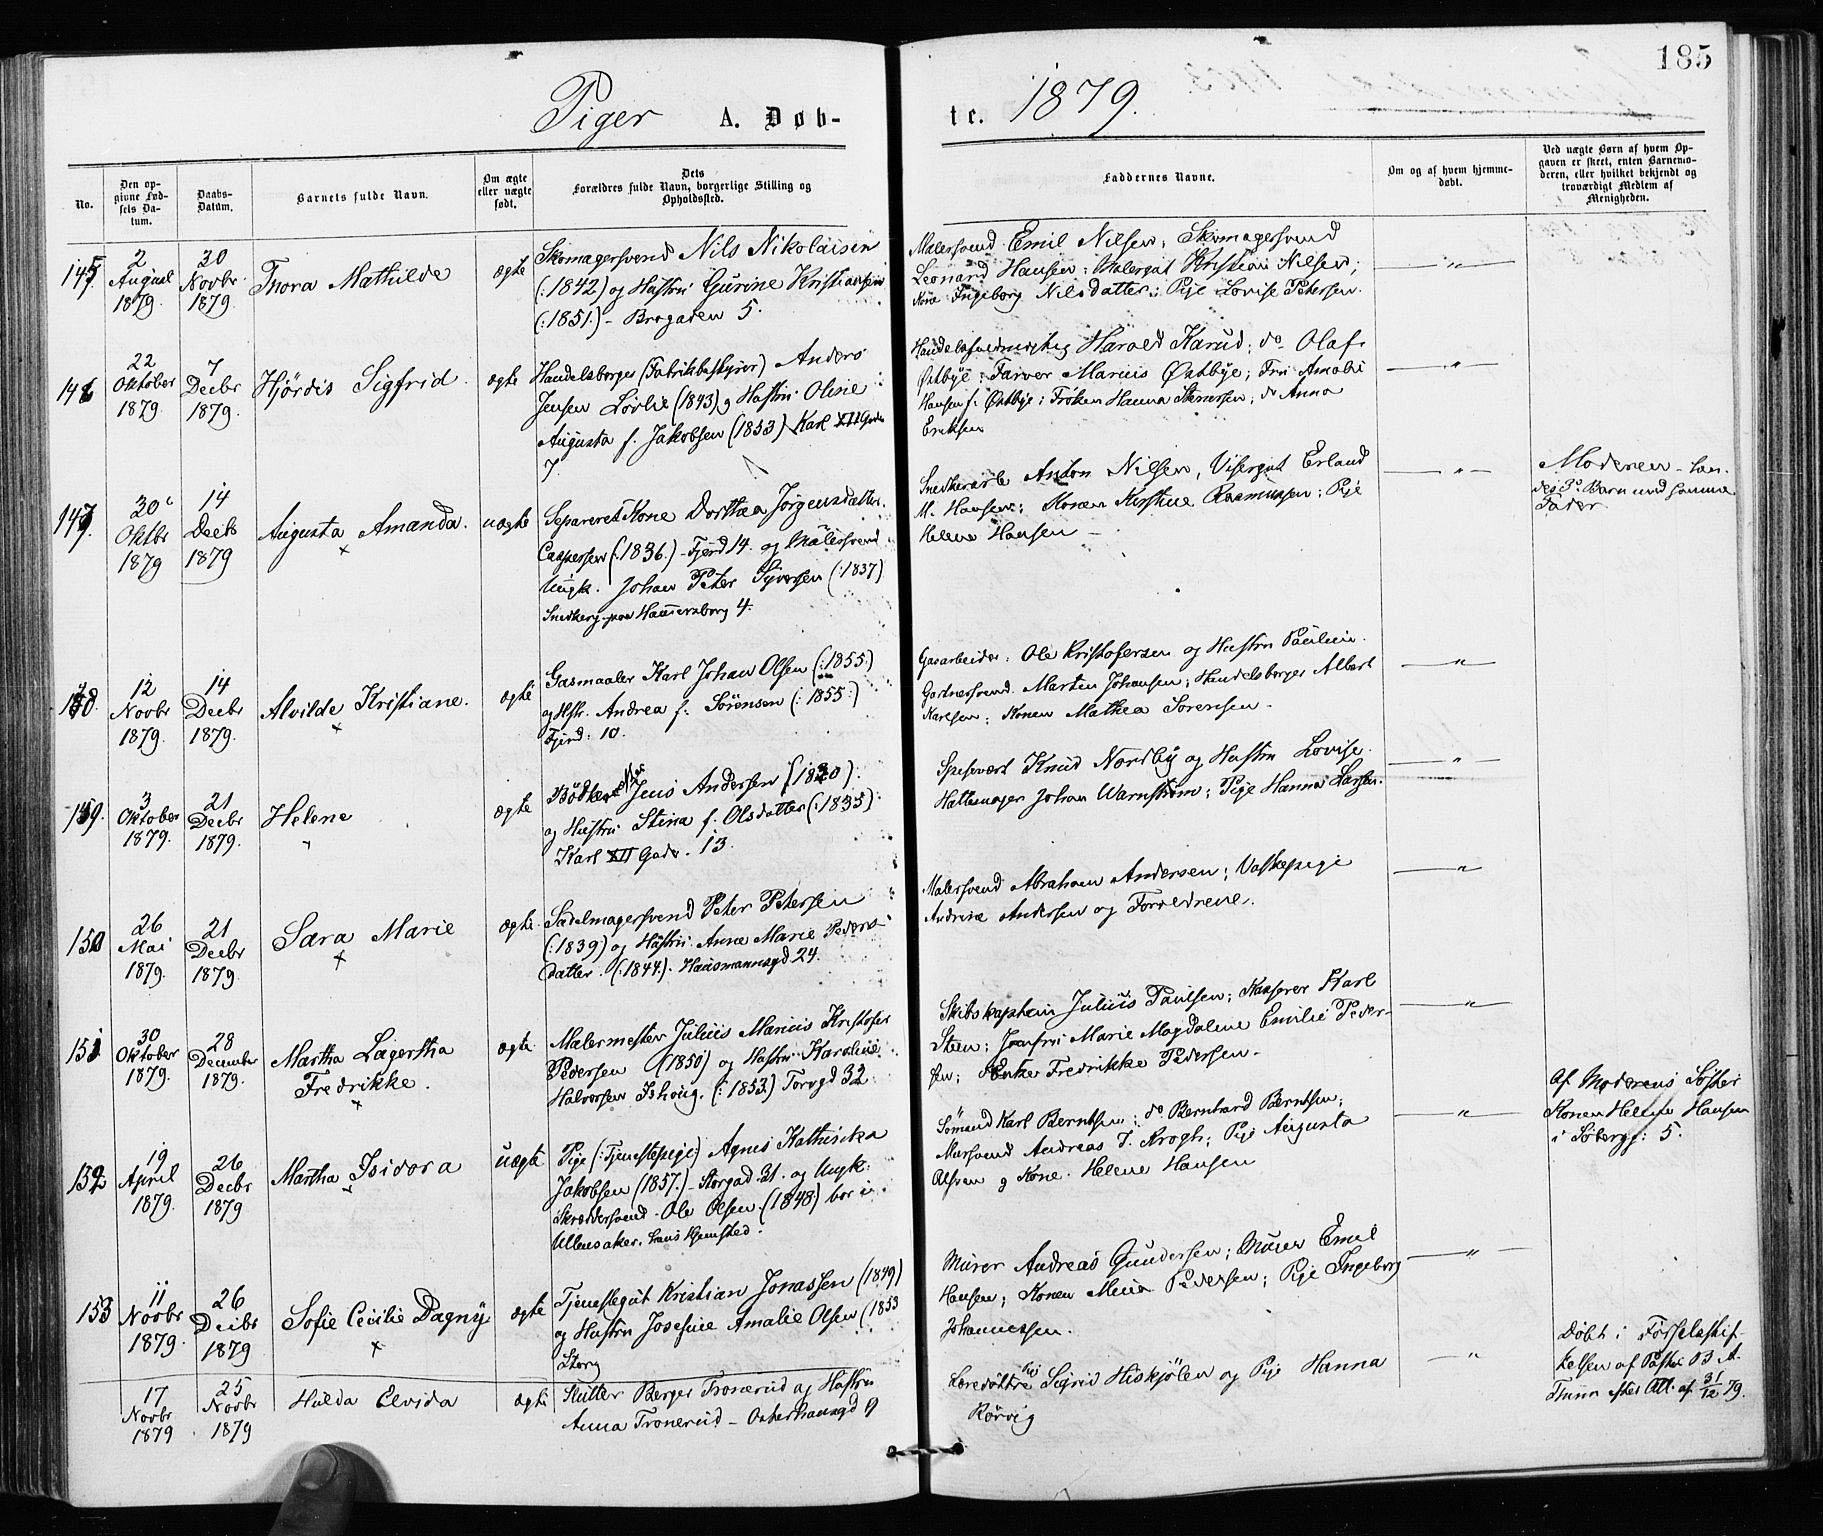 185
Piger A. Døb-
te. 1879.
No.
Den op-
givne Fød-
sels Da-
tum.
Daabs-
Datum.
Barnets fulde Navn.
Om ægte
eller uægte
født.
Dets
Forældres fulde Navn, borgerlige Stilling og
Opholdssted.
Faddernes Navne.
Om og af hvem hjemme-
døbt.
Ved uægte Børn af hvem Op-
gaven er skeet, enten Barnemo-
deren, eller hvilket bekjendt og
troværdigt Medlem af
Menigheden.
145.
2
August
1879.
30
Novbr
1879.
Thora Mathilde
ægte
Skomagersvend Nils Nikolaisen
(:1842) og Hustru Gurine Kristiansen
(:1851.) - Brogaden 5.
Malersvend Emil Nilsen; Skomagersvend
Leonard Hansen; Malergut Kristian Nilsen;
Kone Ingeborg Nilsdatter; Pige Lovise Petersen.
— " —
146
22
Oktober
1879.
7
Decbr
1879.
Hjördis Sigfrid.
ægte
Handelsborger (Fabrikbestyrer) Anders
Jensen Lövlie (1843) og Hustru Oline
Augusta f. Jakobsen (1853) Karl XII Gade
7.
Handelsfuldmægtig Harold Karud; do Olaf
Østbye; Farver Marius Østbye; Fru Amalie
Hansen f. Østbye; Fröken Hanna Stenersen; do Anna
Eriksen
— " —
147.
30
Oktbr
1879
14
Decbr
1879
Augusta Amanda.
uægte
Separeret Kone Dorthea Jörgensdatter
Caspersen (:1836.) - Fjerd 14. og Malersvend
Ungk. Johan Peter Syversen (:1837)
Snedkerg. paa Hammersborg 4.
Snedkerarb Anton Nilsen, Visergut Erland
M. Hansen; Konen Kirstine Rasmussen; Pige
Helene Hansen —
— " —
Moderen -
Barn med samme
Fader
148.
12
Novbr
1879.
14
Decbr
1879.
Alvilde Kristiane.
ægte
Gasmaaler Karl Johan Olsen (:1855:)
og Hstr. Andrea f. Sörensen (:1855:)
Fjerd: 10.
Gasarbeider Ole Kristofersen og Hustru Pauline
Gartnersvend Marten Johansen; Handelsborger Albert
Karlsen; Konen Mathea Sörensen.
— " —
149.
3
Oktober
1879.
21
Decbr
1879.
Helene
ægte
Bödker Jens Andersen (1830).
og Hustru Stina f. Olsdatter (:1835)
Karl XII Gade. 13.
Spisevært Knud Nordby og Hustru Lovise.
Hattemager Johan Warnström; Pige Hanna Larsen.
— " —
150
26
Mai
1879.
21
Decbr
1879.
Sara Marie
ægte
Sadelmagersvend Peter Petersen
(:1839) og Hustru Anne Marie Peders-
datter. (:1844). Hausmannsgd 24.
Malersvend Abraham Andersen; Vaskepige
Andrine Andersen og Forældrene.
— " —
151
30
Oktober
1879.
28
December
1879.
Martha Lagertha
Fredrikke.
ægte
Malermester Julius Marius Kristofer
Pedersen (1850) og Hustru Karoline
Halvorsen Ishoug. (:1853.) Torvgd 32
Skibskaptein Julius Paulsen; Kasserer Karl
Steen; Jomfru Marie Magdalene Emilie Peder-
sen; Enke Fredrikke Pedersen.
— " —
152
19
April
1879.
26
Decbr
1879
Martha Isidora
uægte
Pige (:Tjenestepige) Agnes Kathinka
Jakobsen (1857.) - Storgad 31. og Ungk:
Skræddersvend Ole Olsen. (1848) bor i
Ullensaker. hans Hjemsted.
Sömand Karl Berntsen; do Bernhard Berntsen;
Mursvend Andreas J. Krogh; Pige Augusta
Olsen og Kone Helene Hansen
— " —
Af Moderens Söster
Konen Helene Hansen
i Söbergg: 5.
153
11
Novbr
1879.
26
Decbr
1879
Sofie Cecilie Dagny
ægte
Tjenestegut Kristian Jonassen (1849)
og Hustru Josefine Amalie Olsen (1853
Storg
Murer Andreas Gundersen; Murer Emil
Hansen; Konen Mina Pedersen; Pige Ingeborg
Johannessen.
— " —
17
Novbr
1879
25
Novbr
1879
Hulda Elvida
ægte
Slutter Berger Tronerud og Hustru
Anna Tronerud - Osterhausgd 9
Læredöttre Pige Sigrid Hiskjölen og Pige Hanna
Rörvig
— " —
Döbt i Fødselsstif-
telsen af Pastor B. A.
efter Att. af 31/12 79.